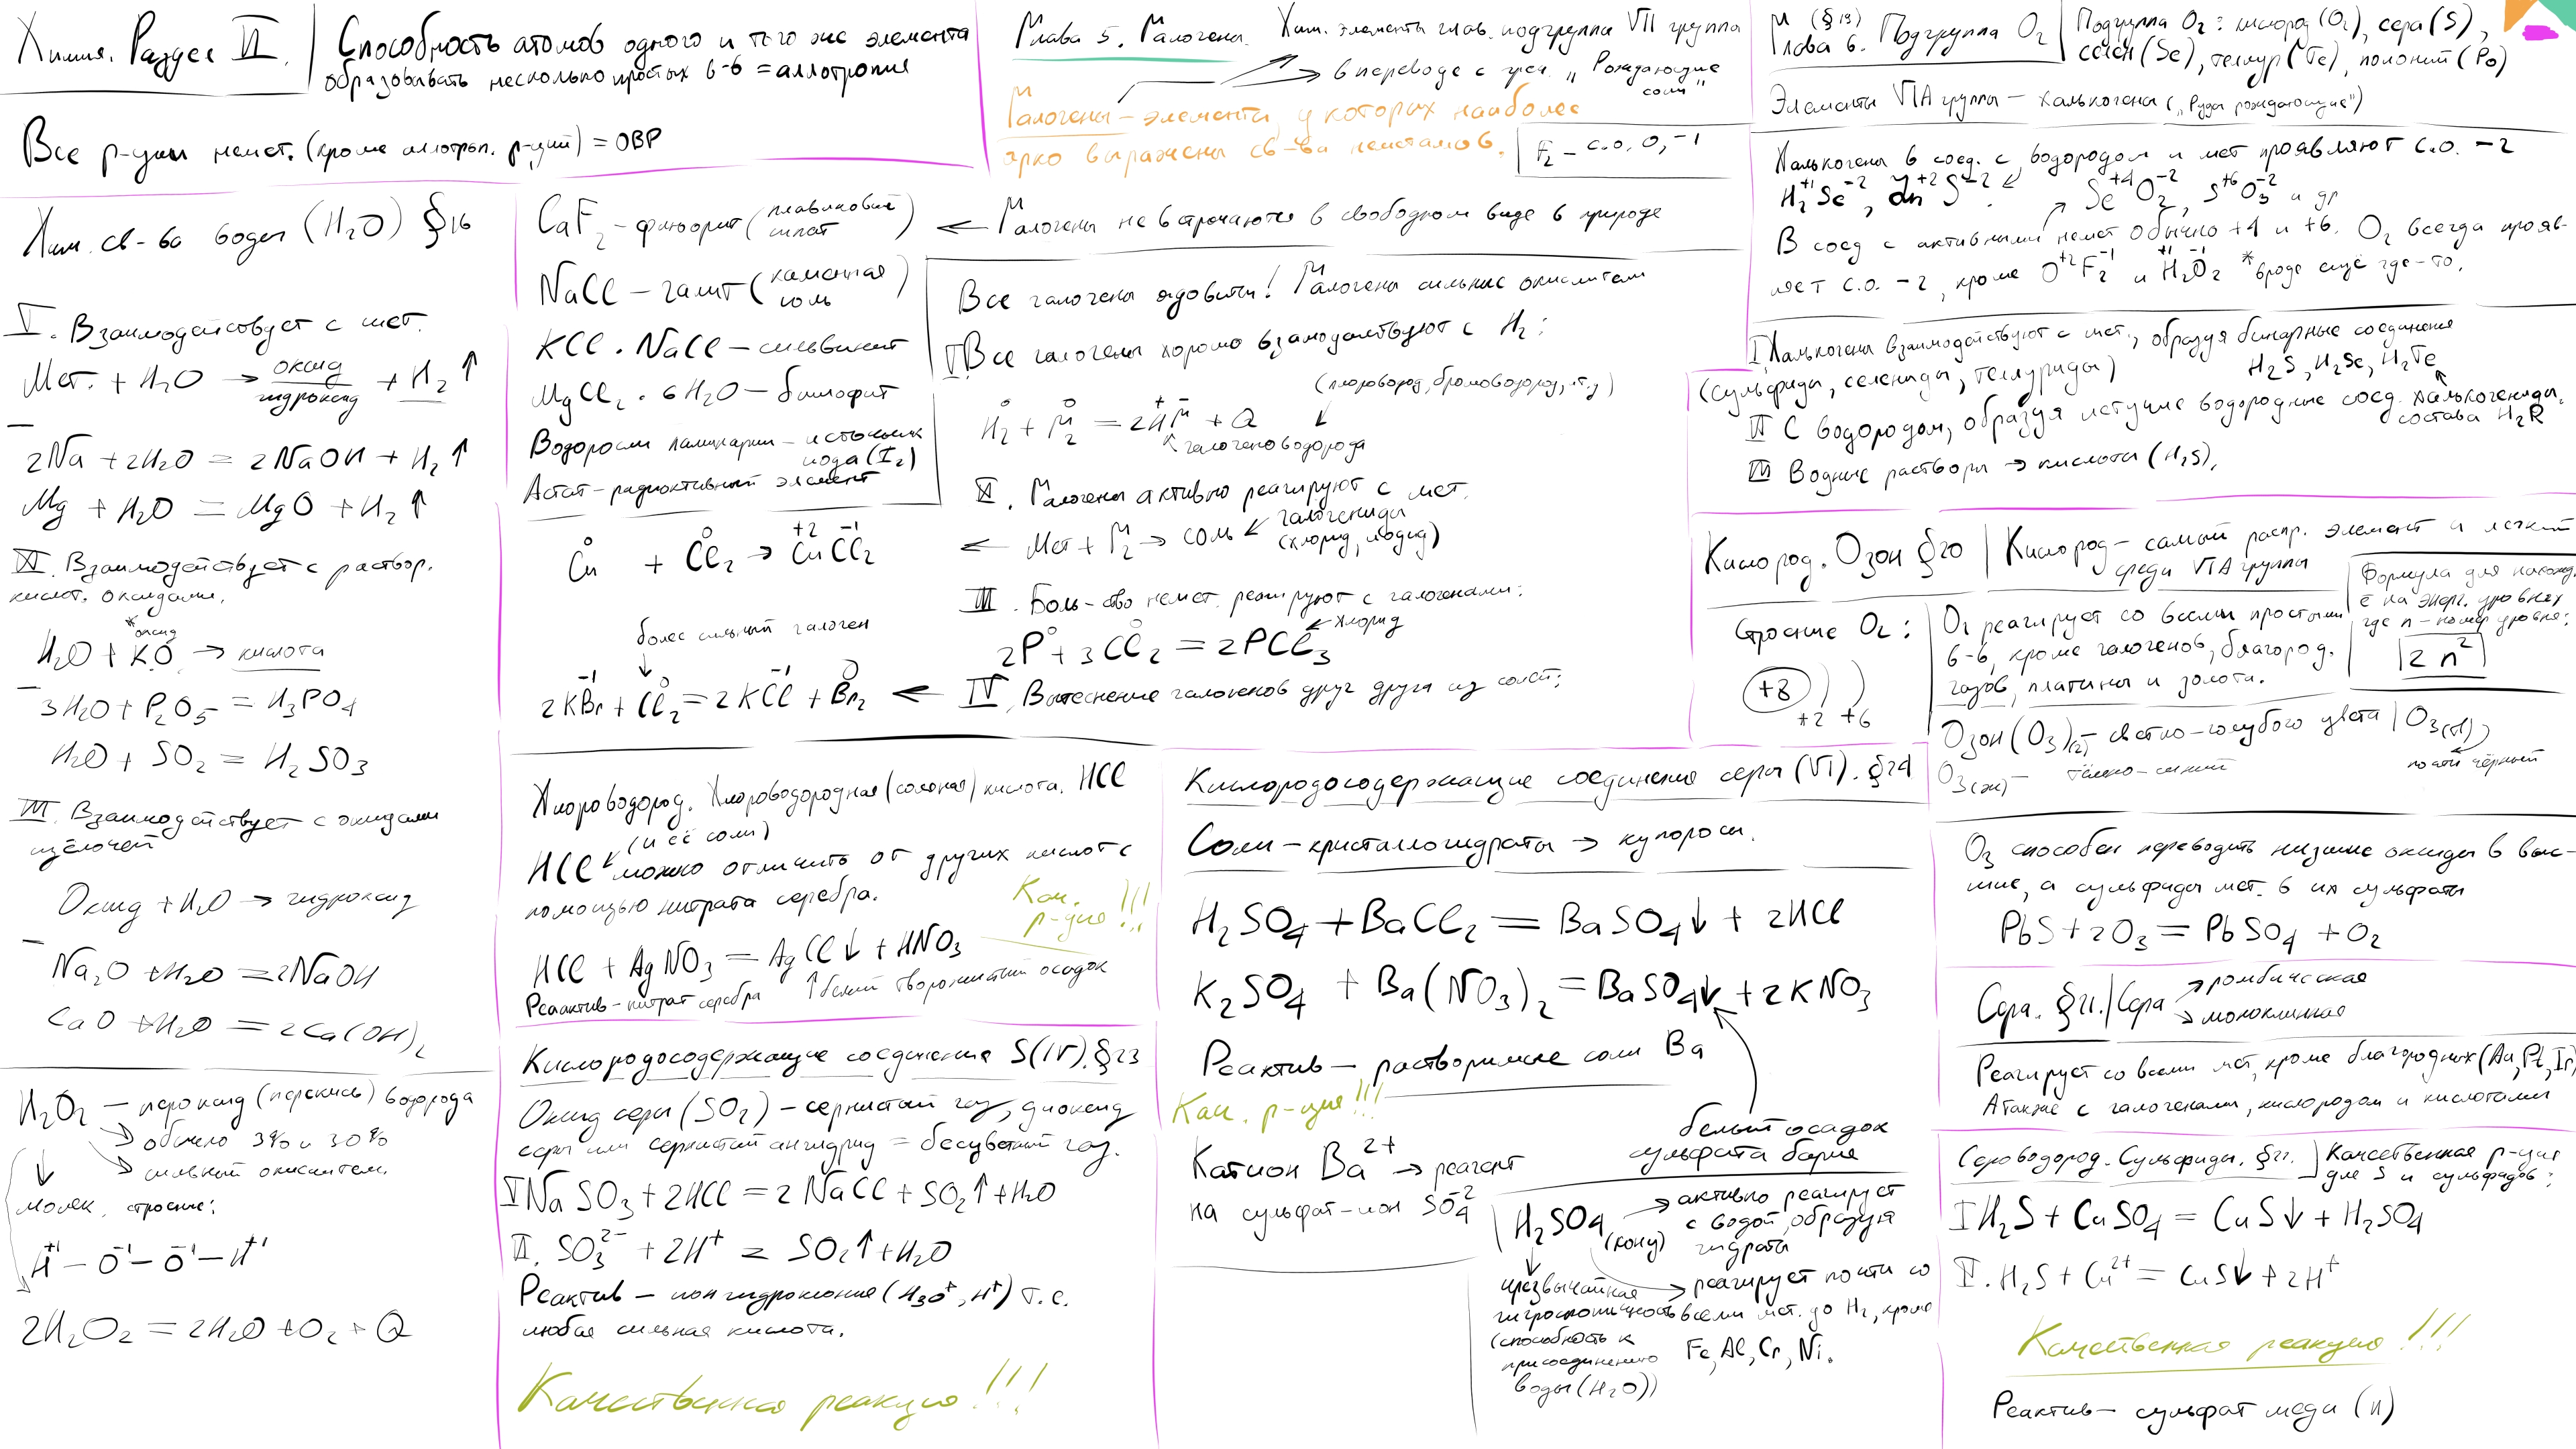 Химия. Раздел VI.
Способность атомов одного и того же элемента
образовывать несколько простых в-в = аллотропия
Все р-ции немет. (кроме аллотроп. р-ций) = ОВР
Хим. св-ва воды (H₂O) §16
I. Взаимодействует с мет.
Мет. + H₂O → оксид/гидроксид + H₂↑
2Na + 2H₂O = 2NaOH + H₂↑
Mg + H₂O = MgO + H₂↑
II. Взаимодействует с раствор.
кислот. оксидами.
*оксид
H₂O + KO → кислота
3H₂O + P₂O₅ = H₃PO₄
H₂O + SO₂ = H₂SO₃
III. Взаимодействует с оксидами
щёлочей
Оксид + H₂O → гидроксид
Na₂O + H₂O = 2NaOH
CaO + H₂O = 2Ca(OH)₂
H₂O₂ – пероксид (перекись) водорода
→ обычно 3% и 30%
→ сильный окислитель.
молек. строение:
H⁺¹ – O⁻¹ – O⁻¹ – H⁺¹
2H₂O₂ = 2H₂O + O₂ + Q
Глава 5. Галогены. Хим. элементы глав. подгруппа VII группа
→ в переводе с греч. „Рождающие
соли"
Галогены – элементы, у которых наиболее
ярко выражены св-ва неметаллов.
F₂ – с.о. 0, -1
CaF₂ – флюорит (плавиковый
шпат) ← Галогены не встречаются в свободном виде в природе
NaCl – галит (каменная
соль)
KCl · NaCl – сильвинит
MgCl₂ · 6H₂O – бишофит
Водоросли ламинарии – источник
иода (I₂)
Астат – радиоктивный элемент
Все галогены ядовиты! Галогены сильные окислители
I Все галогены хорошо взаимодействуют с H₂:
(хлороводород, бромоводород, и т.д)
H₂⁰ + Г₂⁰ = 2H⁺Г⁻ + Q
галогеноводорода
II. Галогены активно реагируют с мет.
← Мет + Г₂ → соль ← галогениды
(хлорид, иодид)
Cu⁰ + Cl₂⁰ → Cu⁺²Cl₂⁻¹
III. Боль-тво немет. реагируют с галогенами:
← хлорид
2P⁰ + 3Cl₂⁰ = 2PCl₃
более сильный галоген
2KBr⁻¹ + Cl₂⁰ = 2KCl⁻¹ + Br₂⁰ ← IV. Вытеснение галогенов друг друга из солей:
Хлороводород. Хлороводородная (соляная) кислота. HCl
(и её соли)
HCl можно отличить от других кислот с
помощью нитрата серебра.
Кач.
р-ция!!!
HCl + AgNO₃ = AgCl↓ + HNO₃
Реактив – нитрат серебра ↑ белый творожистый осадок
Кислородосодержащие соединения S(IV). §23
Оксид серы (SO₂) – сернистый газ, диоксид
серы или сернистый ангидрид = бесцветный газ.
I Na SO₃ + 2HCl = 2NaCl + SO₂↑ + H₂O
II. SO₃²⁻ + 2H⁺ = SO₂↑ + H₂O
Реактив – ион гидроксония (H₃O⁺, H⁺) т.е.
любая сильная кислота.
Качественная реакцию!!!
Кислородосодержащие соединения серы (VI). §24
Соли – кристаллогидраты → купоросы.
H₂SO₄ + BaCl₂ = BaSO₄↓ + 2HCl
K₂SO₄ + Ba(NO₃)₂ = BaSO₄↓ + 2KNO₃
Реактив – растворимые соли Ba
Кач. р-ция!!!
белый осадок
сульфата бария
Катион Ba²⁺ → реагент
на сульфат-ион SO₄⁻²
H₂SO₄ (конц) → активно реагирует
с водой, образуя
гидраты
→ реагирует почти со
всеми мет. до H₂, кроме
Fe, Al, Cr, Ni.
чрезвычайная
гигроскопичность
(способность к
присоединению
воды (H₂O))
Глава 6. (§19) Подгруппа O₂
Подгруппа O₂: кислород (O₂), сера (S),
селен (Se), теллур (Te), полоний (Po)
Элементы VIA группы – халькогены („Руды рождающие")
Халькогены в соед. с водородом и мет проявляют с.о. -2
H₂⁺¹Se⁻², Zn⁺²S⁻² Se⁺⁴O₂⁻², S⁺⁶O₃⁻² и др
В соед с активными немет обычно +4 и +6. O₂ всегда прояв-
ляет с.о. -2, кроме O⁺²F₂⁻¹ и H₂⁺¹O₂⁻¹ *вроде ещё где-то.
I Халькогены взаимодействуют с мет., образуя бинарные соединения
(сульфиды, селениды, теллуриды)
H₂S, H₂Se, H₂Te
II С водородом, образуя летучие водородные соед. халькогениды.
состава H₂R
III Водные растворы → кислоты (H₂S),
Кислород. Озон §20
Кислород – самый распр. элемент и легкий
среди VIA группы
Строение O₂:
+8
+2 +6
O₂ реагирует со всеми простыми
в-в, кроме галогенов, благород.
газов, платины и золота.
Формула для нахожд.
ē на энерг. уровнях
где n – номер уровня:
2n²
Озон (O₃)(г) – светло-голубого цвета | O₃(тв)
почти чёрный
O₃(ж) – тёмно-синий
O₃ способен переводить низшие оксиды в выс-
шие, а сульфиды мет. в их сульфаты
PbS + 2O₃ = PbSO₄ + O₂
Сера. §21. | Сера → ромбическая
→ моноклинная
Реагирует со всеми мет, кроме благородных (Au, Pt, Ir)
А также с галогенами, кислородом и кислотами
Сероводород. Сульфиды. §22.
Качественная р-ция
для S и сульфидов:
I H₂S + CuSO₄ = CuS↓ + H₂SO₄
II. H₂S + Cu²⁺ = CuS↓ + 2H⁺
Качественная реакцию!!!
Реактив – сульфат меди (II)